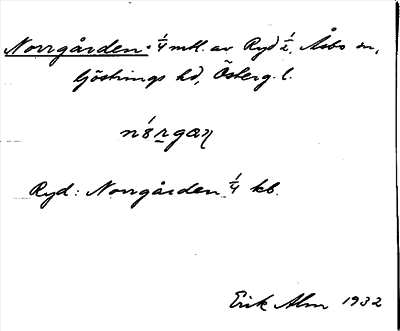 Norrgården. 1/4 mtl. av Ryd 1/2, Åsbo sn,
Göstrings hd, Österg. l.
Ryd: Norrgården 1/4 kb.
Erik Alm 1932